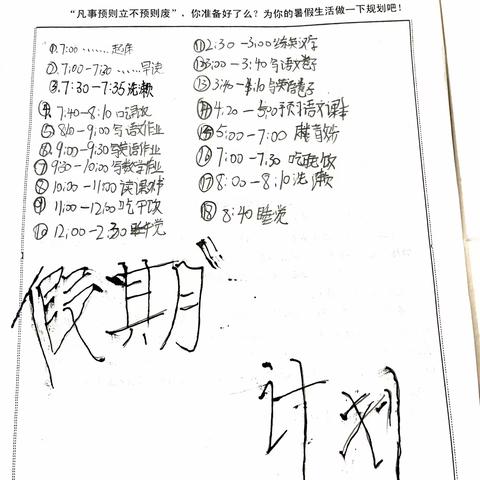 “凡事预则立不预则废”，你准备好了么？为你的暑假生活做一下规划吧！
①7:00 ……起床
②7:00-7:30 ……早读
③7:30-7:35洗漱
④7:40-8:10
⑤8:10-9:00写语文作业
⑥9:00-9:30写英语作业
⑦9:30-10:00写数学作业
⑧10:00-11:00读课外书
⑨11:00-12:00吃午饭
⑩12:00-2:30睡午觉
⑪2:30-3:00练英汉字
⑫3:00-3:40写语文卷子
⑬3:40-4:10写英语卷子
⑭4:20-5:00预习语文课本
⑮5:00-7:00
⑯7:00-7:30吃晚饭
⑰8:00-8:10洗漱
⑱8:40睡觉
假期
计划